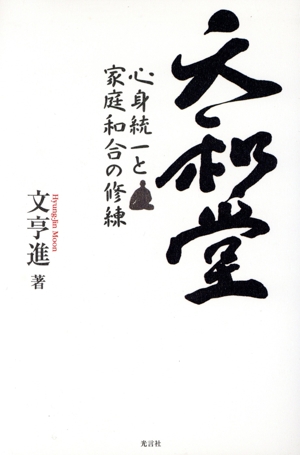 天和堂
心身統一と
家庭和合の修練
文亨進 著
Hyung Jin Moon
光言社